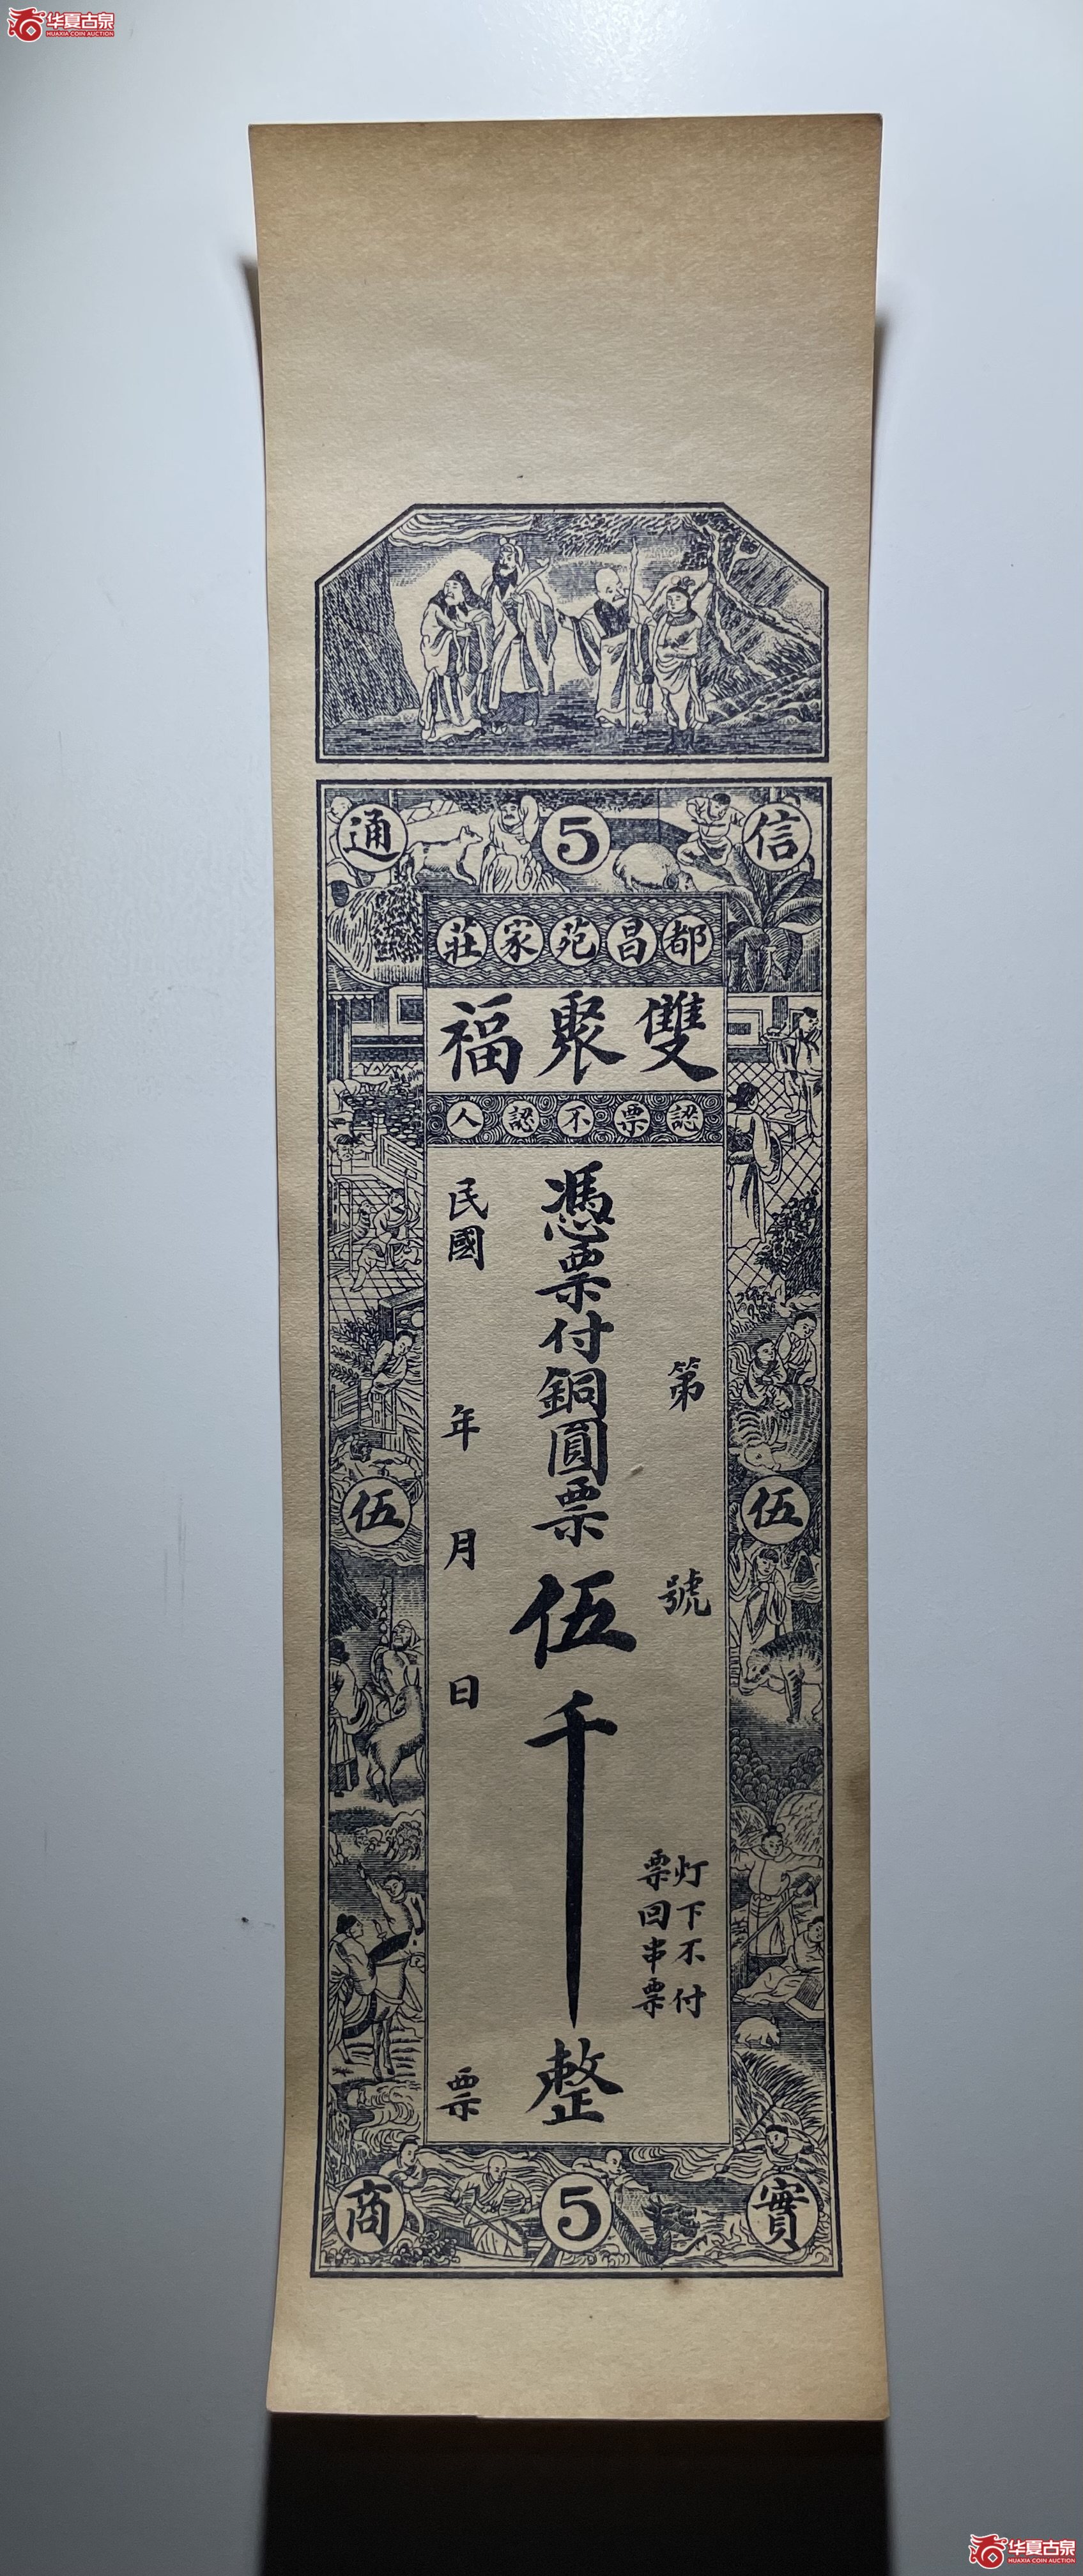 华夏古泉
HUAXIA COIN AUCTION
信 5 通
都昌苑家莊
雙聚福
認票不認人
第 號
灯下不付
票回串票
憑票付銅圓票伍千整
民國 年 月 日 票
伍 伍
實 5 商
华夏古泉
HUAXIA COIN AUCTION